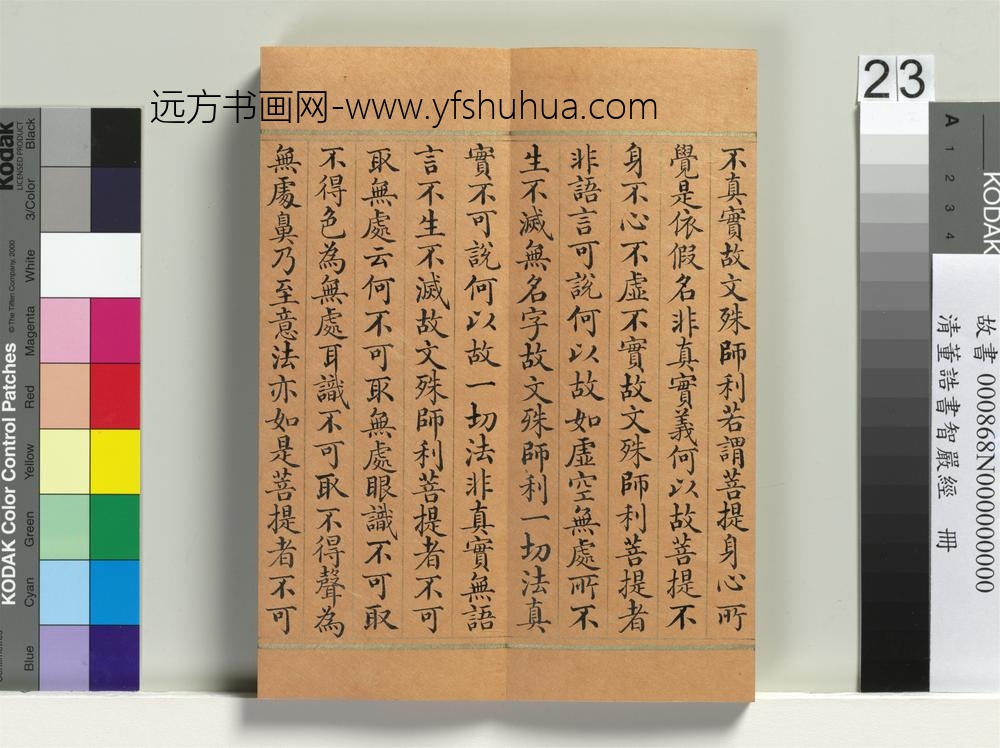 远方书画网-www.yfshuhua.com
不真實故文殊師利若謂菩提身心所
覺是依假名非真實義何以故菩提不
身不心不虛不實故文殊師利菩提者
非語言可說何以故如虛空無處所不
生不滅無名字故文殊師利一切法真
實不可說何以故一切法非真實無語
言不生不滅故文殊師利菩提者不可
取無處云何不可取無處眼識不可取
不得色為無處耳識不可取不得聲為
無處鼻乃至意法亦如是菩提者不可
23
故書 000868N000000000
清董誥書智嚴經 冊
KODAK Color Control Patches
Kodak
LICENSED PRODUCT
© The Tiffen Company, 2000
Black
3/Color
White
Magenta
Red
Yellow
Green
Cyan
Blue
A
1
2
3
4
KODAK